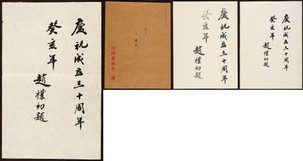 慶祝成立三十周年
癸亥年
趙樸初題
慶祝成立三十周年
癸亥年
趙樸初題
慶祝成立三十周年
癸亥年
趙樸初題